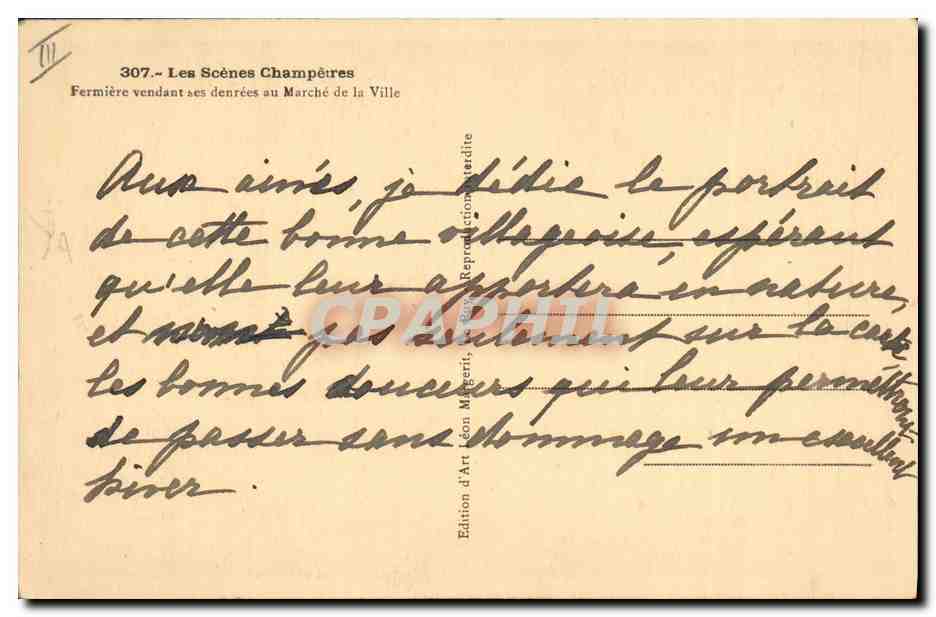 III
307.- Les Scènes Champêtres
Fermière vendant ses denrées au Marché de la Ville
Aux aînés, je dédie le portrait
de cette bonne villageoise, espérant
qu'elle leur apportera, en nature,
et pas seulement sur la carte
les bonnes douceurs qui leur permettront
de passer sans dommage un excellent
hiver.
Edition d'Art Léon Margerit, Reproduction interdite
CPAPHIL